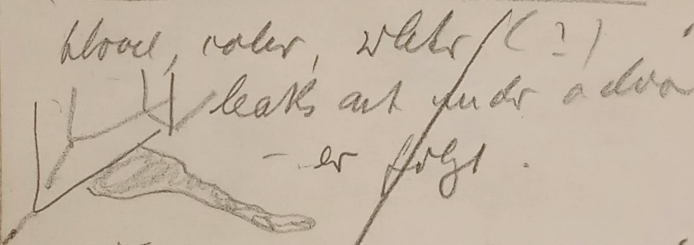 blood, color, water (?)
leaks out under a door
- er folgt.